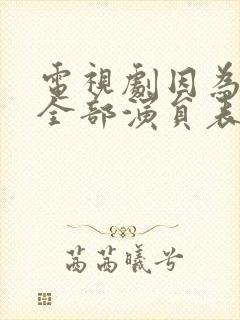 電視劇因為
全部演員表
茜茜曦兮